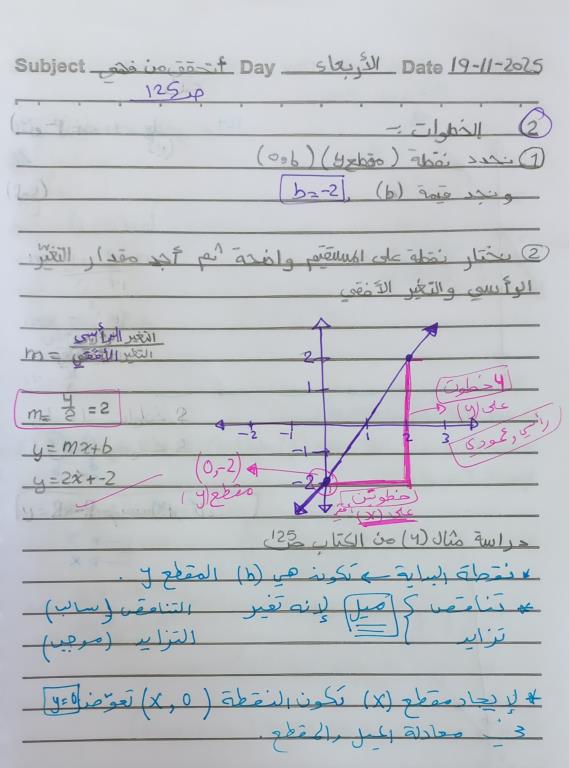 Subject أتحقق من فهمي Day الأربعاء Date 19-11-2025
ص125
② الخطوات :-
① نحدد نقطة (مقطع y) (0,b)
ونجد قيمة (b) . b=-2
② نختار نقطة على المستقيم واضحة ثم أجد مقدار التغيّر
الرأسي والتغير الأفقي
m = التغير الرأسي / التغير الأفقي
m = 4/2 = 2
y = mx+b
y = 2x+-2
2
1
-2 -1 1 2 3
-1
-2
4 خطوات
على (y)
رأسي، عمودي
(0,-2)
مقطع (y)
خطوتين
على (x)
دراسة مثال (4) من الكتاب ص125
* نقطة البداية ← تكون هي (b) المقطع y .
* تناقص } ميل لإنه تغير التناقص (سالب)
تزايد التزايد (موجب)
* لإيجاد مقطع (x) تكون النقطة (x , 0) نعوّض y=0
في معادلة الميل والمقطع .